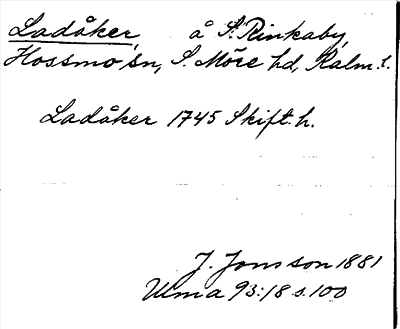 Ladåker, å S. Rinkaby,
Hossmo sn, S. Möre hd, Kalm. l.
Ladåker 1745 Skift. h.
J. Jonsson 1881
Ulma 93:18 s. 100